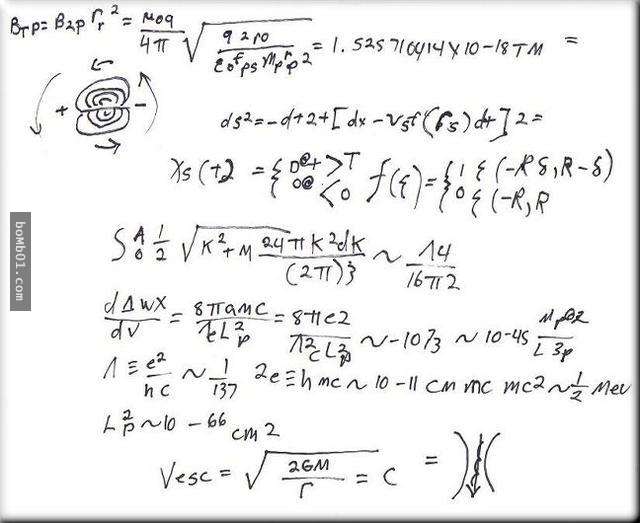 BTP = B2P Γr² = μ0q / 4π √(q 2 r0 / ε0 f ps mp r p 2) = 1.525710414 X 10 - 18 TM =
+ -
ds² = -d+2+[dx - Vsf(rs)d+]2 =
Xs(+2 = { D@+ >T 0@ <0 f(ξ) = { 1 ξ (-R δ, R - δ) 0 ξ (-R, R
S A 0 1/2 √K² + M 24πK²dK / (2π)3 ~ Λ4 / 16π2
dΔWX / dV = 8πamc / πeL²p = 8πe2 / Λ²cL²p ~ -1073 ~ 10-45 MpΘ2 / L3p
Λ ≡ e² / hc ~ 1 / 137 2e ≡ h mc ~ 10 - 11 cm mc mc2 ~ 1/2 Mev
L²p ~ 10 - 66 cm2
Vesc = √(2GM / r) = C =
boMb01.com